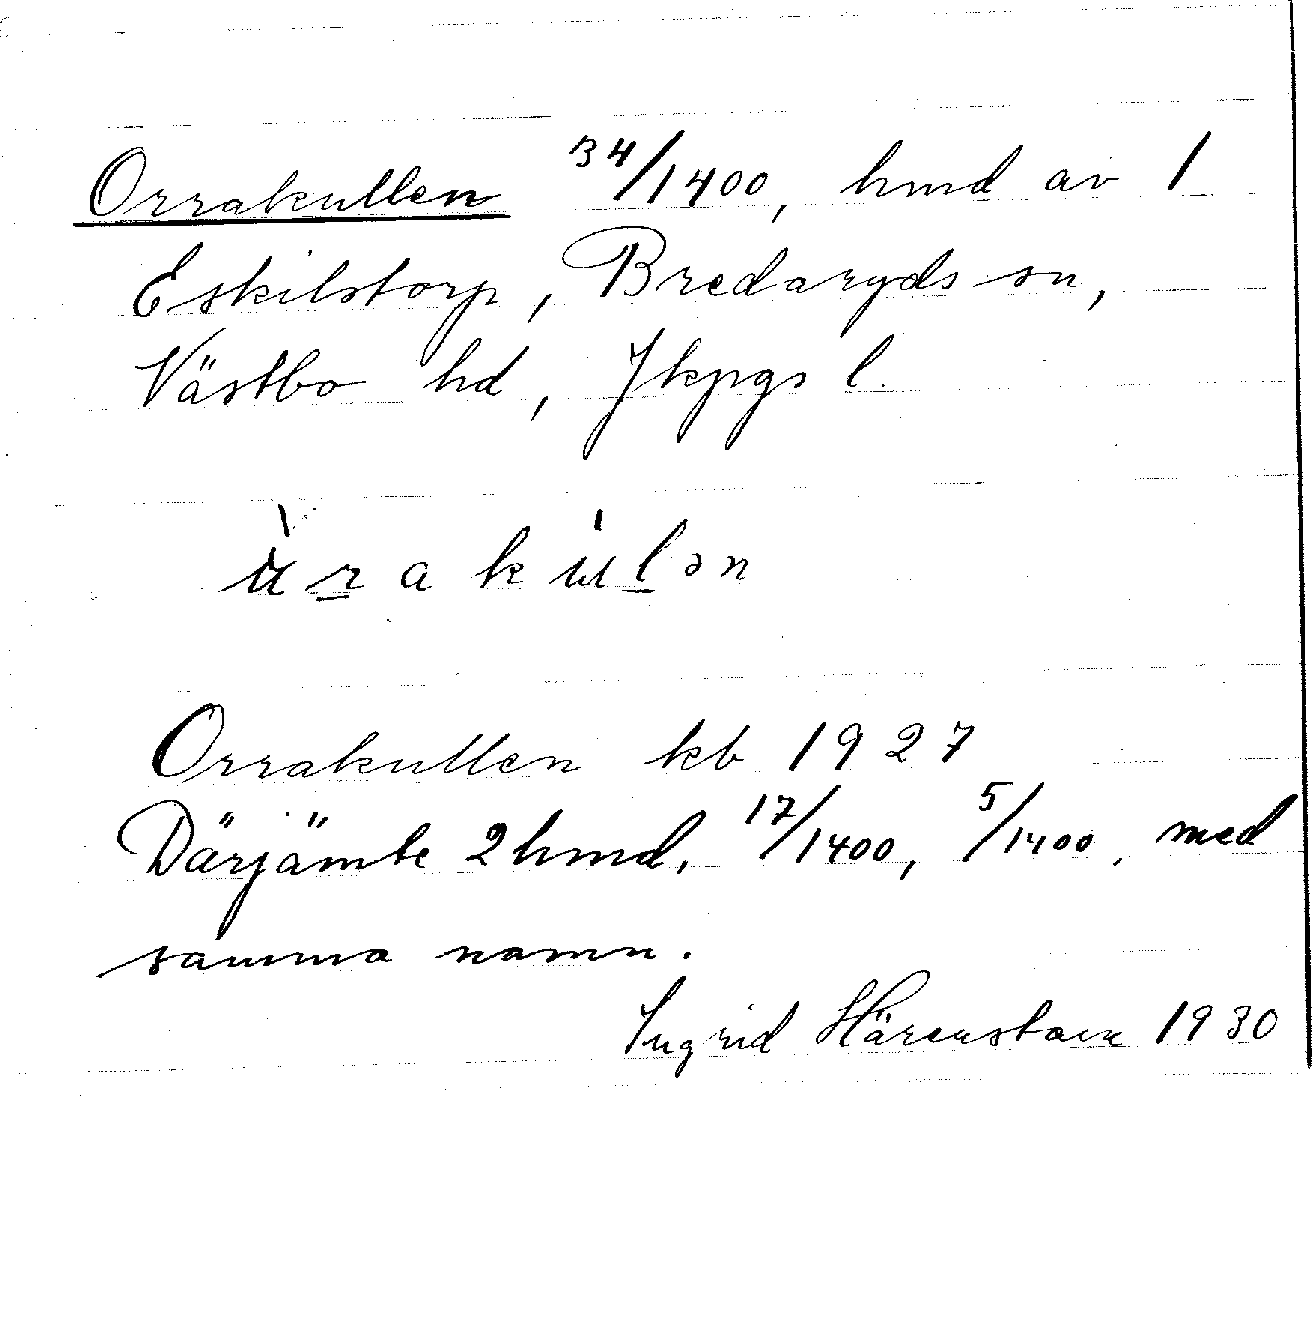 Orrakullen 34/1400, hmd av 1
Eskilstorp, Bredaryds sn,
Västbo hd, Jkpgs l.
ùrakúlən
Orrakullen kb 1927
Därjämte 2 hmd, 17/1400, 5/1400, med
samma namn.
Ingrid Härenstam 1930